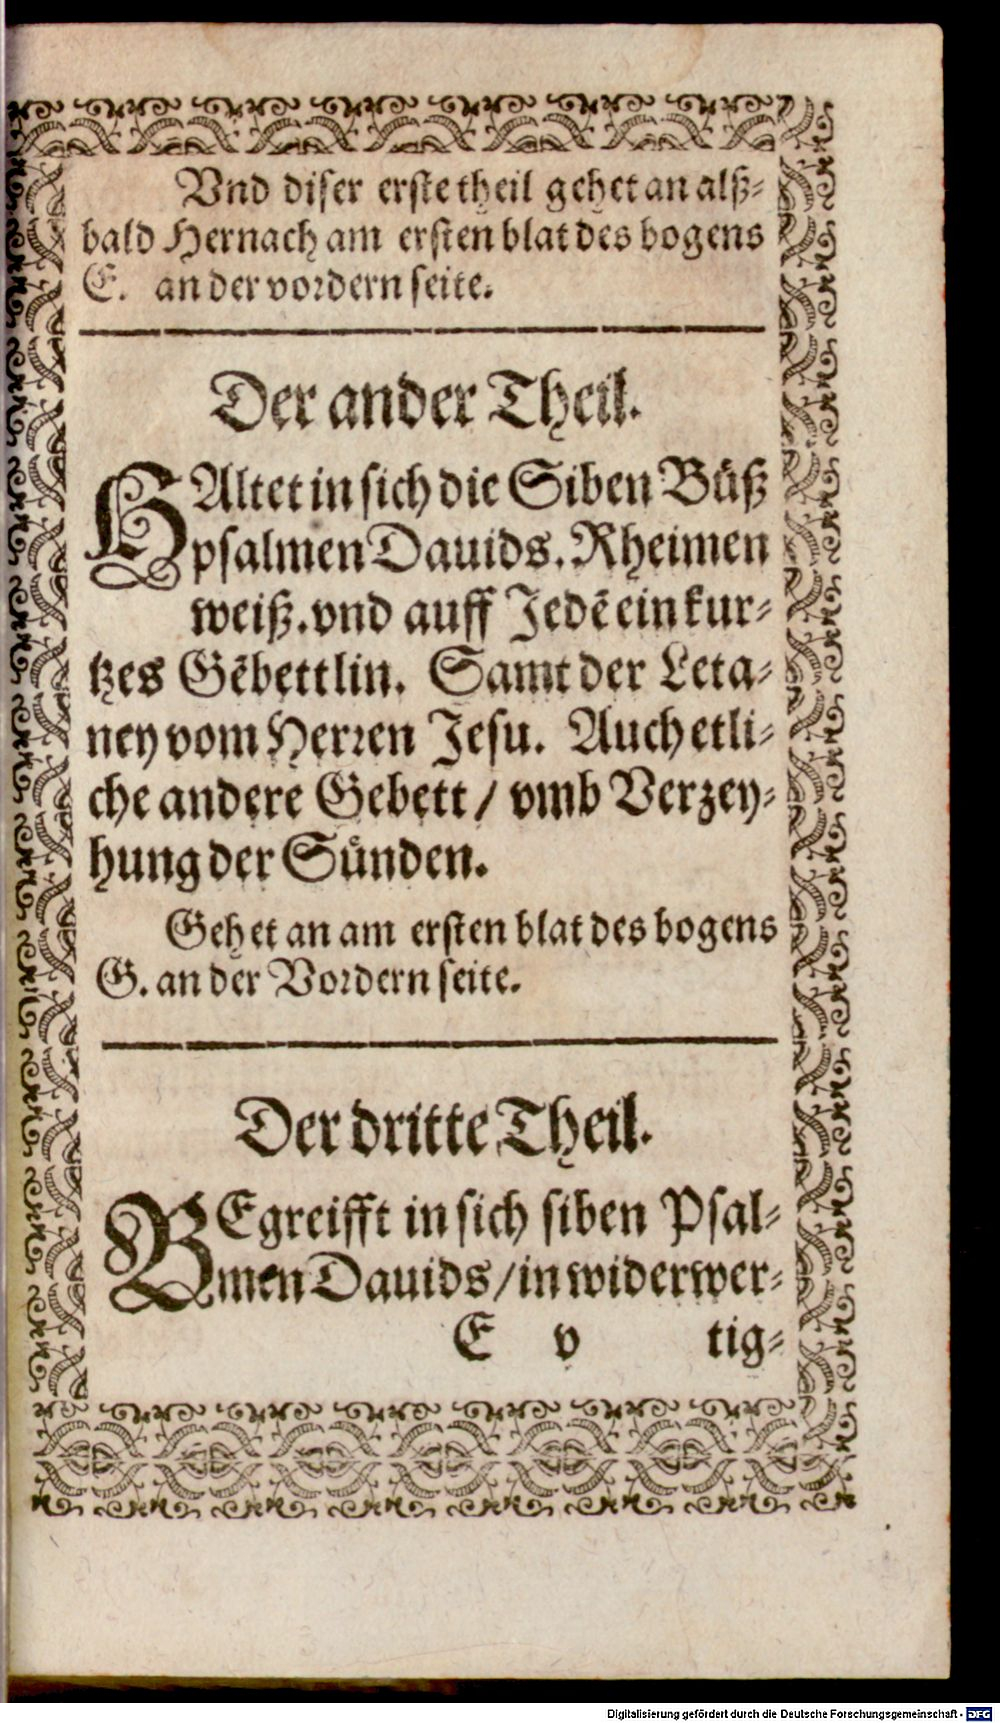 Vnd diser erste theil gehet an alß⸗
bald Hernach am ersten blat des bogens
E. an der vordern seite.
Der ander Theil.
HAltet in sich die Siben Bůß
psalmen Dauids. Rheimen
weiß. vnd auff Jedē ein kur⸗
tzes Gēbettlin. Samt der Leta⸗
ney vom Herren Jesu. Auch etli⸗
che andere Gebett / vmb Verzey⸗
hung der Sünden.
Gehet an am ersten blat des bogens
G. an der Vordern seite.
Der dritte Theil.
BEgreifft in sich siben Psal⸗
men Dauids / in widerwer⸗
E v tig⸗
Digitalisierung gefördert durch die Deutsche Forschungsgemeinschaft - DFG